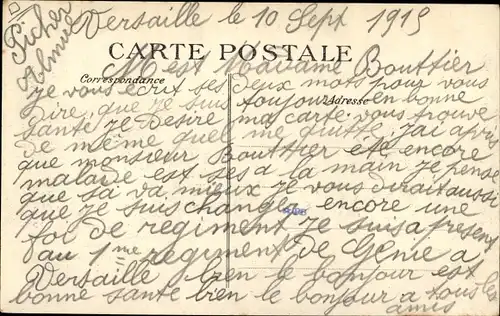 Picher
Almire
Versaille le 10 Sept 1915
CARTE POSTALE
M est Madame Bouttier
Correspondance
je vous écrit ses deux mots pour vous
Adresse
dire, que je suis toujour en bonne
santé je désire ma carte vous trouve
de même quel me quitte, j'ai apris
que monsieur Bouttier ete encore
malade est ses a la main je pense
que sa va mieux je vous dirait aussi
que je suis changé encore une
foi de regiment je suis a present
au 1me regiment de Genie a
Versaille bien le bonjour est
bonne sante bien le bonjour a tous les
amis